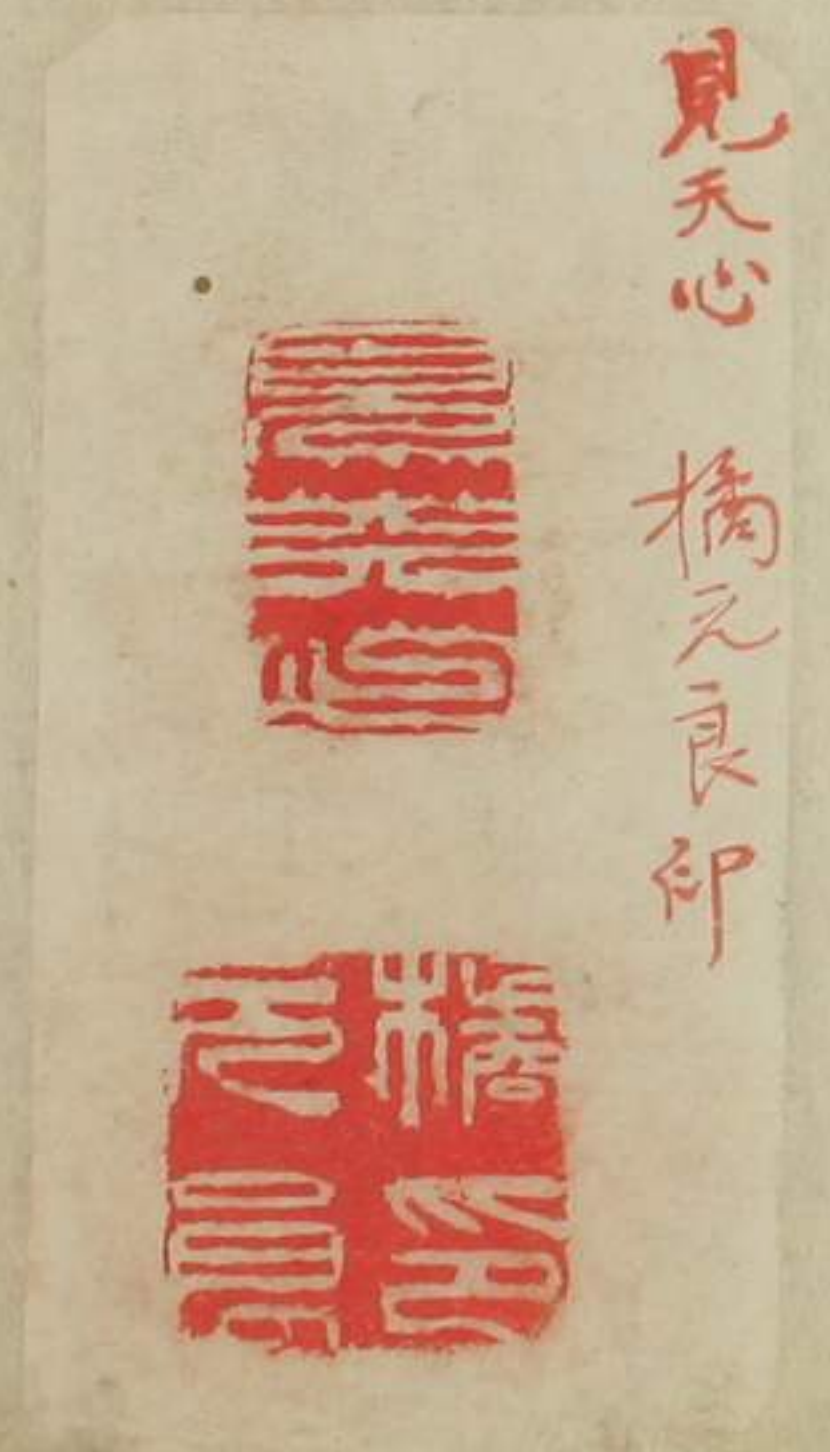 見天心 橘元良印
見天心
橘印元良